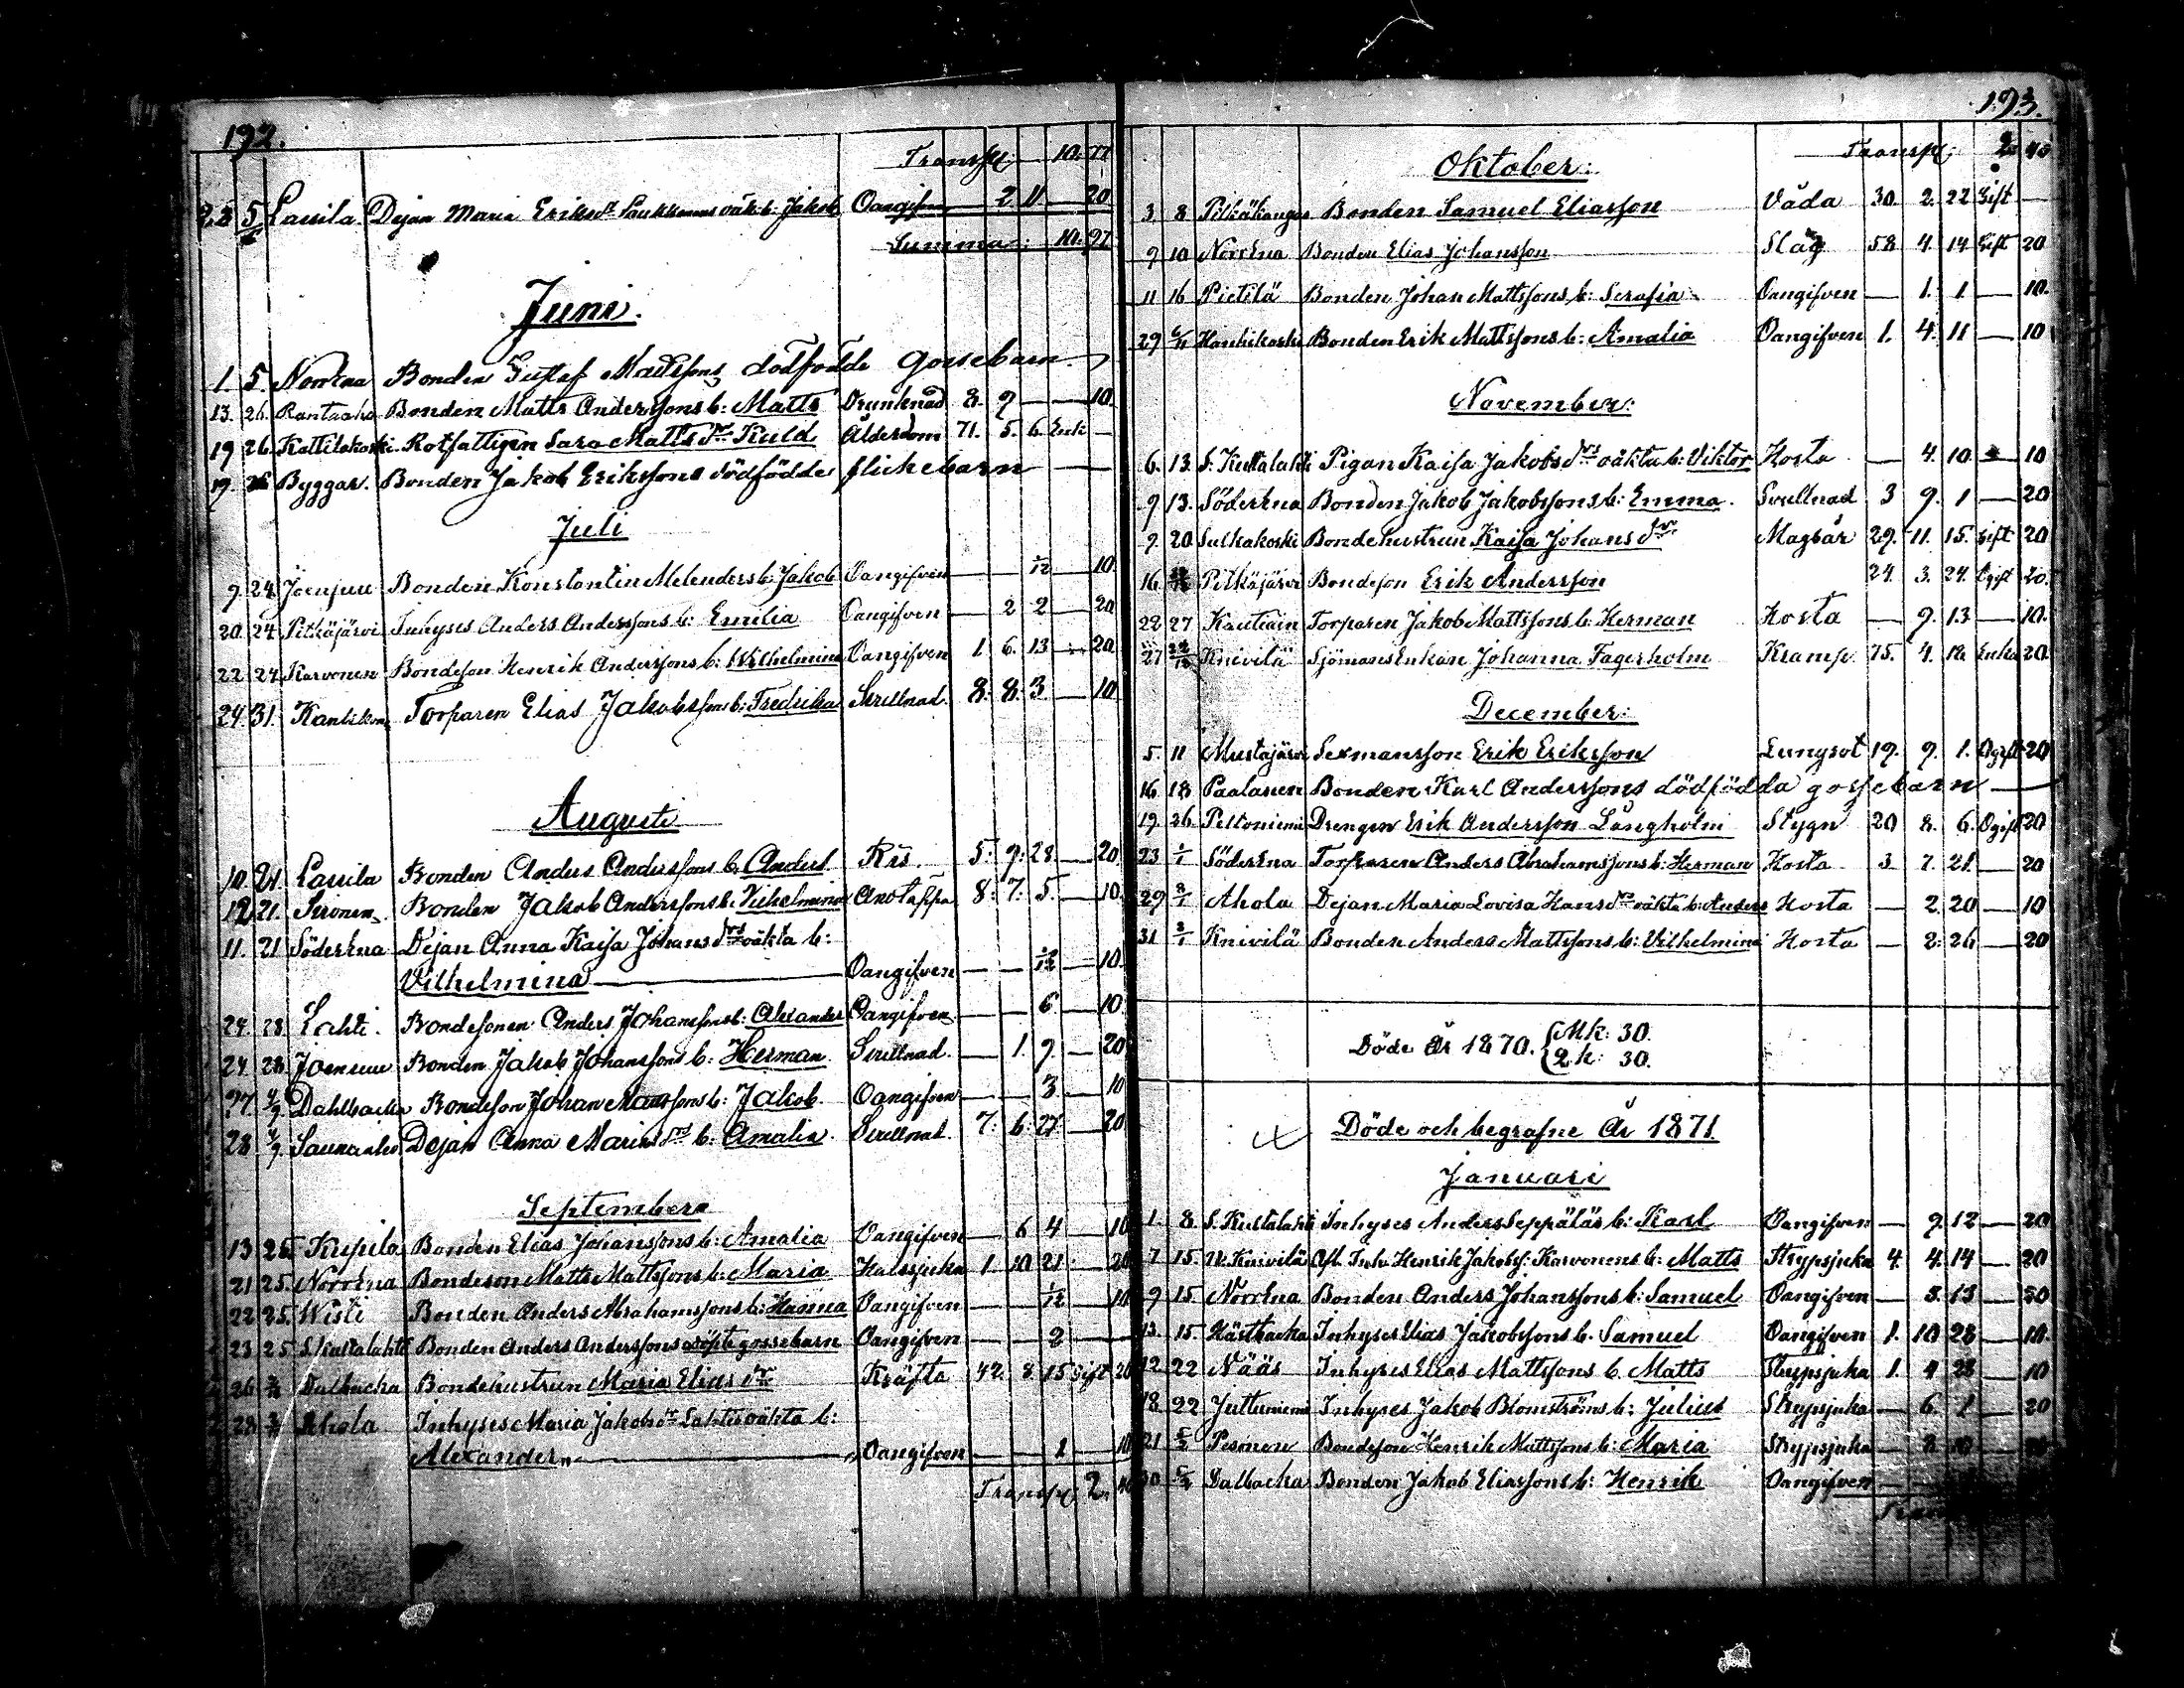 192.
Transp: 10. 77
23 5 Lassila Dejan Maria Eriksdr oäkta b: Jakob Oangifven — 2 11 — 20
Summa: 10. 97
Juni.
1. 5. Norrena Bonden Gustaf Mattssons dödfödde gossebarn
13. 26. Rantaaho Bonden Matts Anderssons b: Matts Drunknad 8. 9 — — 10.
19 26. Kattilakoski Rotfattigen Sara Matts dr Kuld Ålderdom 71. 5. 6. Enk —
19. 26 Byggar. Bonden Jakob Erikssons dödfödde flickebarn
Juli
9. 24. Joensuu Bonden Konstantin Melenders b: Jakob Oangifven — — 1/12 — 10.
20. 24. Pitkäjärvi Inhyses Anders Anderssons b: Emilia Oangifven — 2 2 — 20
22 24 Karvonen Bondeson Henrik Anderssons b: Wilhelmina Oangifven 1. 6. 13 — 20.
24. 31. Torparen Elias Jakobssons b: Fredrika Svullnad. 8. 8. 3 — 10
Augusti
10. 21. Lassila Bonden Anders Anderssons b: Anders Ris. 5. 9. 28 — 20
12. 21. Bonden Jakob Anderssons b: Vilhelmina Andtäppa 8. 7. 5. — 10.
11. 21 Söderena Dejan Anna Kajsa Johans drs oäkta b:
Vilhelmina — Oangifven — — — 10.
24. 28. Lahti. Bondesonen Anders Johanssons b: Alexander Oangifven — — 6 — 10.
24. 28 Joensuu Bonden Jakob Johanssons b: Herman Svullnad. — 1. 9. — 20
27. 4/9 Dahlbacka Bondeson Johan Manssons b: Jakob. Oangifven — — 3 — 10
28 4/9. Saunaaho Dejan Anna Marias drs b: Amalia. Svullnad. 7. 6. 27 — 20.
September
13 25 Kujsila Bonden Elias Johanssons b: Amalia Oangifven — 6 4 — 10
21 25. Norrena Bondeson Matts Mattssons b: Maria Halssjuka 1. 10 21. — 20
22 25. Wisti Bonden Anders Abrahamssons b: Hanna Oangifven — — 1/12 — 10
23 25 S. Kattalahti Bonden Anders Anderssons odöpte gossebarn Oangifven — — 2 —
26 2/10 Dalbacka Bondehustrun Maria Elias dr Kräfta 42. 8 15 Gift 20
28 Ahola Inhyses Maria Jakobs dr Lahtis oäkta b:
Alexander — Oangifven — — 1 — 10
Transp: 2. 40
193.
Transp: 2. 40
Oktober:
3 8 Pitkäkangas Bonden Samuel Eliasson Våda 30. 2. 22 Gift —
9 10 Norrena Bonden Elias Johansson Slag 58 4. 14 Gift 20
11 16 Pietilä Bonden Johan Mattssons b: Serafia Oangifven — 1. 1 — 10.
29 6/11 Hanhikoski Bonden Erik Mattssons b: Amalia Oangifven 1. 4. 11 — 10
November:
6. 13. S. Kattalahti Pigan Kajsa Jakobs drs oäkta b: Viktor Hosta — 4. 10 — 10
9 13. Söderena Bonden Jakob Jakobssons b: Emma. Svullnad 3 9. 1 — 20
9. 20 Sulkakoski Bondehustrun Kajsa Johans dr Magsår 29. 11. 15. Gift 20
16. Pitkäjärvi Bondeson Erik Andersson 24. 3. 24. Ogift 20.
22 27 Kautiain Torparen Jakob Mattssons b: Herman Hosta — 9. 13 — 10.
27 Knivilä Sjömans Enkan Johanna Fagerholm Kramp. 75. 4. Enka 20.
December:
5. 11 Mustajärvi Sexmansson Erik Eriksson Lungsot 19. 9. 1. Ogift 20
16. 18 Paalanen Bonden Karl Anderssons dödfödda gossebarn —
19. 26. Peltoniemi Drengen Erik Andersson Långholm Stygn 20 8. 6. Ogift 20
23 1/1 Söderena Torparen Anders Abrahamssons b: Herman Hosta 3. 7. 21. — 20
29 8/1 Ahola Dejan Maria Lovisa Hans drs oäkta b: Anders Hosta — 2. 20 — 10
31 8/1 Knivilä Bonden Anders Mattssons b: Vilhelmina Hosta — 2. 26 — 20
Döde År 1870. Mk: 30.
Qk: 30.
Döde och begrafne År 1871
Januari
1. 8. S. Kattalahti Inhyses Anders Seppäläs b: Karl Oangifven — 9. 12 — 20
7 15. N. Knivilä Afl. Inh. Henrik Jakobs: Karvonens b: Matts Strypsjuka 4. 4. 14 — 20
9 15. Norrena Bonden Anders Johanssons b: Samuel Oangifven — 8. 13 — 20
13. 15. Hästbacka Inhyses Elias Jakobssons b. Samuel Oangifven 1. 10 28 — 10.
12 22 Nääs Inhyses Elias Mattssons b. Matts Strypsjuka 1. 4 28 — 10
18 22 Juttuniemi Inhyses Jakob Blomströms b: Julius Strypsjuka — 6. 1 — 20
21 5/2 Pesonen Bondeson Henrik Mattssons b: Maria Strypsjuka — 8
30 5/2 Dalbacka Bonden Jakob Eliassons b: Henrik Oangifven —